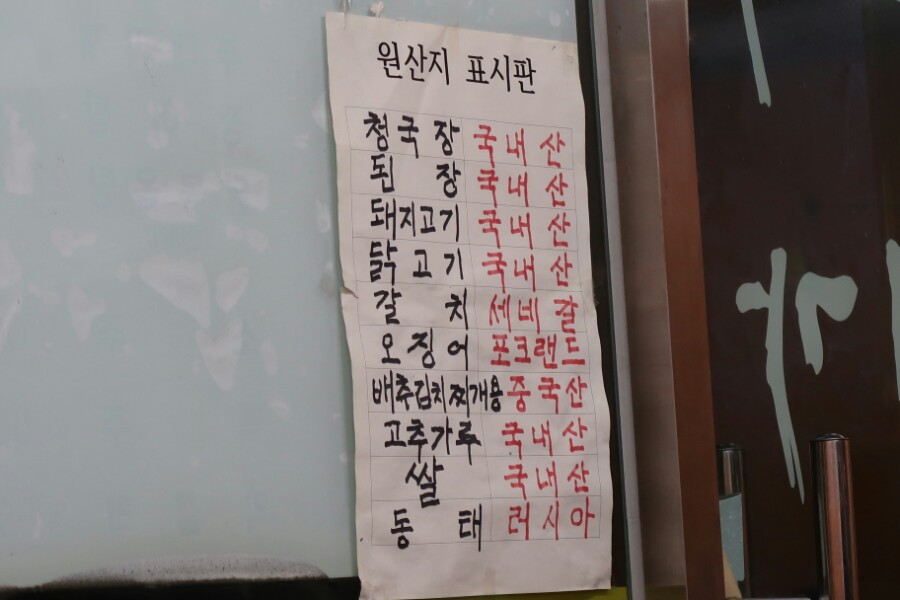 원산지 표시판
청국장 국내산
된장 국내산
돼지고기 국내산
닭고기 국내산
갈치 세네갈
오징어 포크랜드
배추김치찌개용 중국산
고추가루 국내산
쌀 국내산
동태 러시아